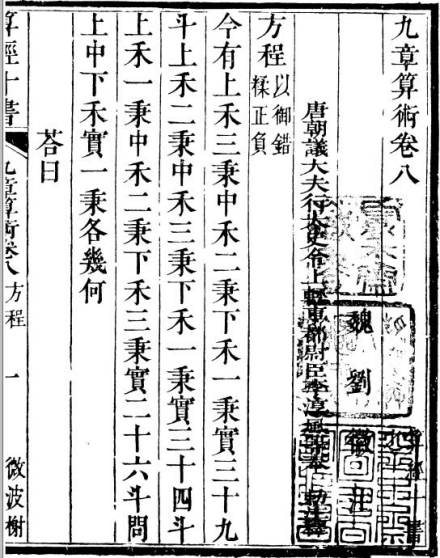 九章算術卷八
魏 劉 徽 注
唐朝議大夫行太史令上輕車都尉臣李淳風等奉 勑注釋
方程以御錯糅正負
今有上禾三秉中禾二秉下禾一秉實三十九
斗上禾二秉中禾三秉下禾一秉實三十四斗
上禾一秉中禾二秉下禾三秉實二十六斗問
上中下禾實一秉各幾何
荅曰
算經十書
九章算術卷八 方程
一
微波榭